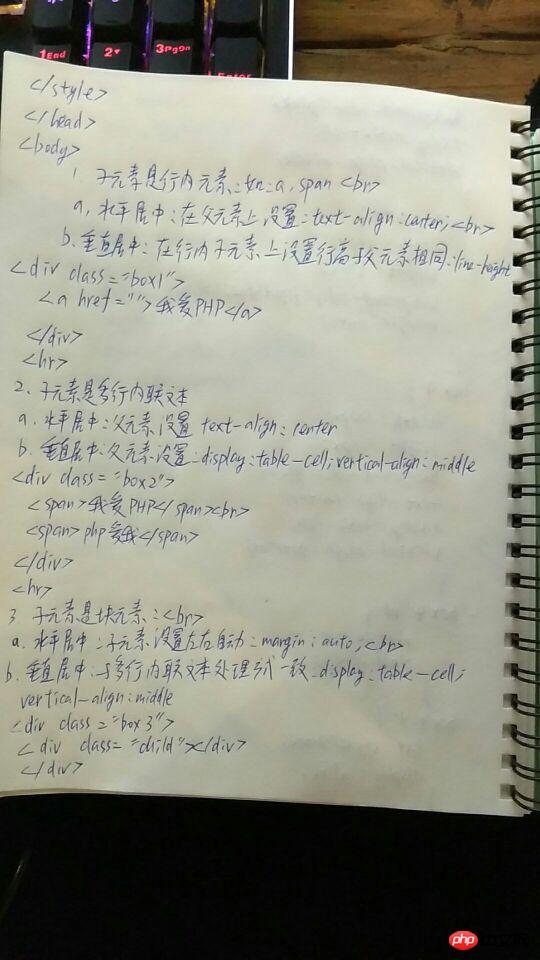 1 End
2
3 PgDn
Enter
</style>
</head>
<body>
1. 子元素是行内元素:如:a, span <br>
a, 水平居中:在父元素上设置:text-align:center;<br>
b. 垂直居中:在行内子元素上设置行高与父元素相同:line-height
<div class="box1">
<a href="">我爱PHP</a>
</div>
<hr>
2、子元素是多行内联文本
a. 水平居中:父元素设置 text-align:center
b. 垂直居中:父元素设置:display:table-cell;vertical-align:middle
<div class="box2">
<span>我爱PHP</span><br>
<span>php爱我</span>
</div>
<hr>
3 子元素是块元素:<br>
a. 水平居中:子元素设置左右自动:margin:auto;<br>
b. 垂直居中:与多行内联文本处理方式一致.display:table-cell;
vertical-align:middle
<div class="box3">
<div class="child"></div>
</div>
php